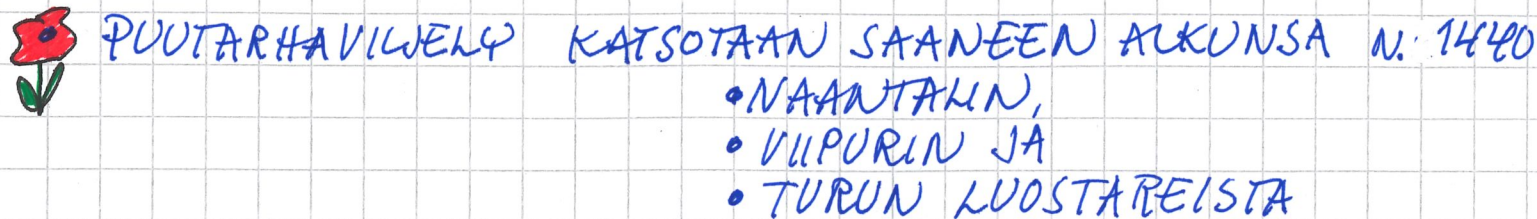 PUUTARHAVILJELY KATSOTAAN SAANEEN ALKUNSA N. 1440
• NAANTALIN,
• VIIPURIN JA
• TURUN LUOSTAREISTA